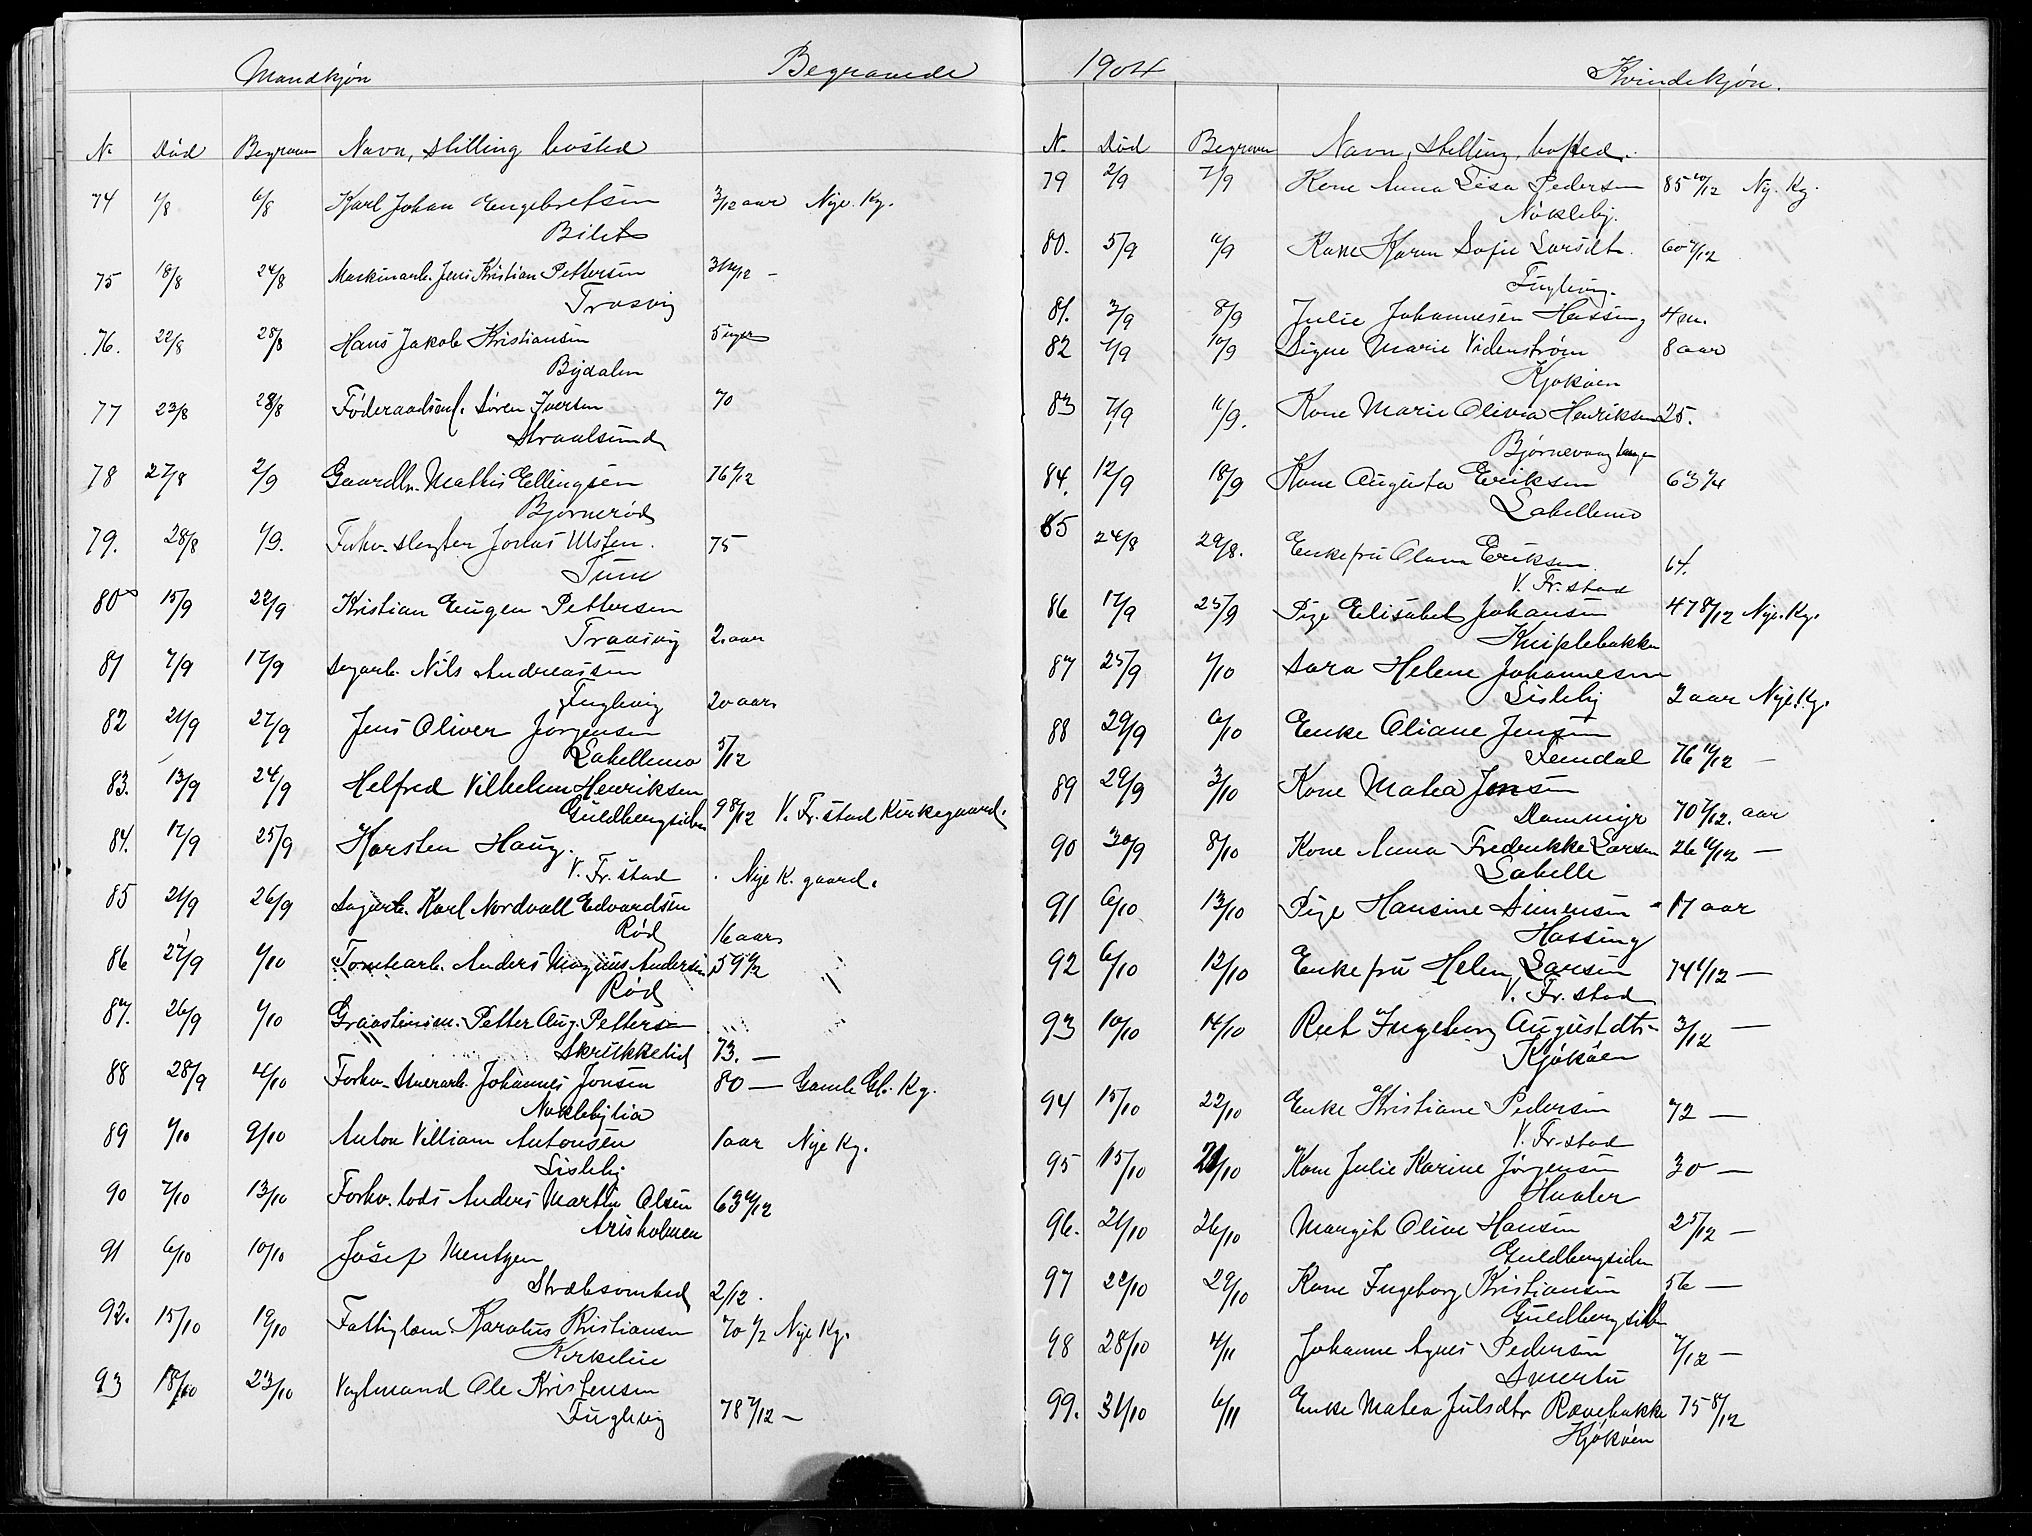 Mandkjøn
Begravede
N. Død Begraven Navn, stilling bosted
74 1/8 6/8 Karl Johan Engebretsen 3/12 aar Nye. Kg.
Bilet
75 18/8 24/8 Maskinarb. Jens Kristian Pettersen
Trosvig
76. 22/8 28/8 Hans Jakob Kristiansen
Bydalen
77 23/8 28/8 Føderaadsm. Søren Iversen 70
Straalsund
78 27/8 2/9 Gaardbr. Mathis Ellingsen 76
Bjørnerød
79. 28/8 1/9. Forhv. slagter Jonas Ulsten. 75
Tune
80 15/9 22/9 Kristian Eugen Pettersen
Traasvig 2. aar
81 7/9 17/9 Sagarb. Nils Andreassen
Fuglevig 20 aar
82 21/9 27/9 Jens Oliver Jørgensen
Labellemo 5/12
83. 13/9 24/9 Helfred Vilhelm Henriksen
Guldbergsiden 9 8/12 V. Fr.stad Kirkegaard.
84. 17/9 25/9 Karsten Haug.
V. Fr.stad Nye K. gaard.
85 21/9 26/9 Sagarb. Karl Nordvall Edvardsen
Rød 16 aar
86 27/9 1/10 Tomtearb. Anders Magnus Andersen 59
Rød
87. 26/9 1/10 Graastensm. Petter Aug. Petterse
Skrikkelid 73. —
88 28/9 4/10 Forhv. Johannes Jonsen 80 — Gamle Gl. Kg.
Nøklebylia
89 1/10 9/10 Anton Villiam Antonsen 1 aar Nye Kg.
Lisleby
90 7/10 13/10 Forhv. lods Anders Martin Olsen 63
Arisholmen
91 6/10 10/10 Josef Mentzen
Stræbsomhed 2/12.
92. 15/10 19/10 Fattiglem. Karolus Kristiansen 70 1/2 Nye Kg.
Kirkelie
93 18/10 23/10 Vagtmand Ole Kristensen
Fuglevig 78 —
1904
Kvindekjøn.
N. Død Begraven Navn, stilling, bosted.
79 2/9 7/9 Kone Anna Lisa Pedersen 85 10/12 Ny. Kg.
Nøkleby.
80. 5/9 11/9 Kone Karen Sofie Larsdt. 60
Fuglevig.
81. 3/9 8/9 Julie Johannesen Hassing 4 m.
82 7/9 10/9 Signe Marie Videnstrøm 8 aar
Kjøkøen
83 7/9 11/9. Kone Marie Olivia Henriksen 25.
84. 12/9 18/9 Kone Augusta Eriksen 63
Labellemo
85 24/8 29/8. Enkefru Olava Eriksen 64.
V. Fr.stad
86 17/9 25/9 Pige Elisabet Johansen 47 8/12 Nye. Kg.
Kniplebakken
87 25/9 1/10 Sara Helene Johannesen
Lisleby 2 aar Nye Kg.
88 29/9 6/10 Enke Oliane Jensen
Femdal 76 —
89 29/9 3/10 Kone Matea Jensen
Dammyr 70 7/12. aar
90 30/9 8/10 Kone Anna Fredrikke Larsen 26 —
Labelle
91 6/10 13/10 Pige Hansine Simensen 17 aar
Hassing
92 6/10 12/10 Enkefru Helene Larsen 74 —
V. Fr.stad
93 10/10 14/10 Rut Ingeborg Augustdt. 3/12 —
Kjøkøen
94 15/10 22/10 Enke Kristiane Pedersen 72 —
V. Fr.stad
95 15/10 21/10 Kone Julie Karine Jørgensen 30 —
Hvaler
96. 21/10 26/10 Margit Olive Hansen 2 5/12 —
Guldbergsiden
97 22/10 29/10 Kone Ingeborg Kristiansen 56 —
Guldbergsiden
98 28/10 4/11 Johanne Agnes Pedersen 7/12 —
Smertu
99. 31/10 6/11 Enke Matea Julsdtr Rævebakke 75 8/12
Kjøkøen